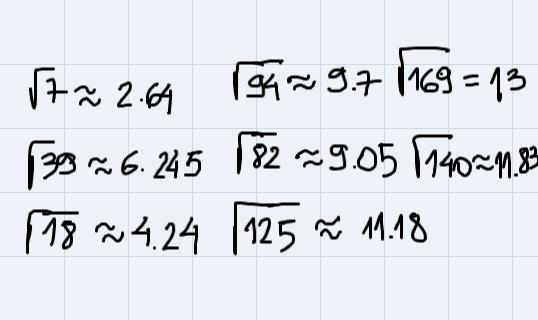 √7 ≈ 2.64 √94 ≈ 9.7 √169 = 13
√39 ≈ 6.245 √82 ≈ 9.05 √140 ≈ 11.83
√18 ≈ 4.24 √125 ≈ 11.18